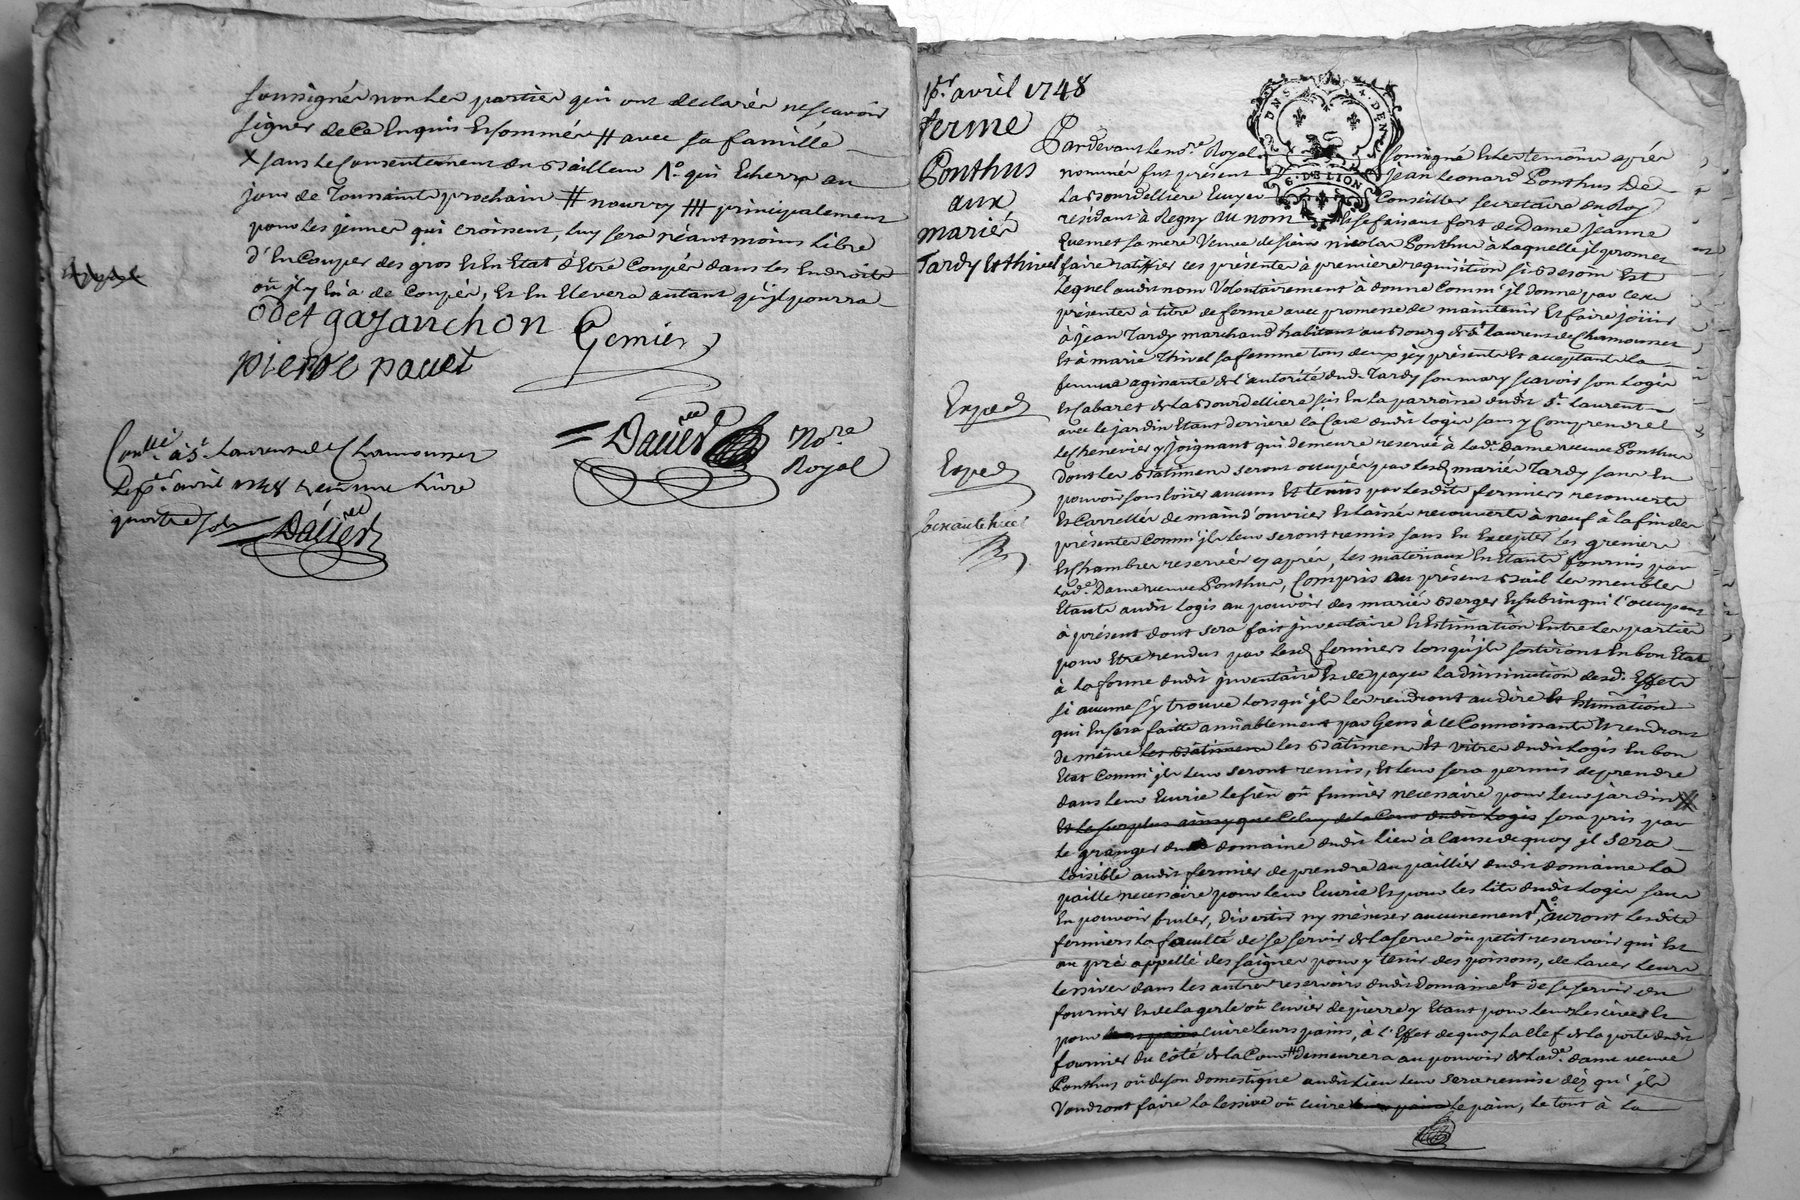 soussignés non les parties qui ont declarés ne scavoir
signer de ce Enquis et sommés # avec sa famille
X sans le consentement du Bailleur /\° qui Echerra au
jour de Toussaints prochain # nourry ### principalement
pour les jeunes qui croissent, luy sera néantmoins libre
d'En couper des gros et En Etat d'Etre coupés dans les Endroits
où jl y En a de coupés, Et En Elevera autant qu'jl pourra
odet gazanchon Gemier
pierre pacuet
Dauier Nore
Royal
Conllé à St Laurent de Chamousset
avril 1748
quatre sols Dauier
1er avril 1748
ferme
Ponthus
aux
mariés
Tardy Et thivel
Exped
Exped
2 D. NS. 4. DEN
G. DE LION
Pardevant le nore Royal soussigné Et les temoins après
nommés fut présent Jean Leonard Ponthus De
La Bourdelliere Ecuyer Conseiller secretaire du Roy
résidant à Regny au nom Et se faisant fort de Dame jeanne
quemet sa mere Veuve de sieur nicolas Ponthus à laquelle jl promet
faire ratiffier ces présentes à premiere requisition si Besoin Est
Lequel audit nom Volontairement à donné Comm' jl donne par ces
présentes à titre de ferme avec promesse de maintenir Et faire joüir
à jean Tardy marchand habitant au Bourg de St Laurent de Chamousset
Et à marie Thivel sa femme tous deux jcy présents Et acceptants la
femme agissante de l'autorité dud. Tardy son mary scavoir son Logis
Et Cabaret de la Bourdelliere sis En la parroisse dudit St. Laurent
avec le jardin Etant derriere la Cave dudit logis sans y Comprendre
le chenevier y joignant qui demeure reservé à lade Dame veuve Ponthus
dont les Bâtimens seront occupés par lesd mariés Tardy sans En
pouvoir sous loüer aucuns Et tenus par lesdits fermiers recouverts
Et Carrellés de main d'ouvrier Et laissés recouverts à neuf à la fin des
présentes Comm' jls leur seront remis sans En Excepter les greniers
Et Chambres reservés cy après, les materiaux En Etants fournis par
lade Dame veuve Ponthus, Compris au présent Bail les meubles
Etants audit Logis au pouvoir des mariés Berger Et subrin qui l'occupent
à présent dont sera fait jnventaire Et Estimation Entre les parties
pour Etre rendus par lesd fermiers lorsqu'jls sortiront En bon Etat
à la forme dudit jnventaire Et de payer la diminution desd. Effets
si aucune s'y trouve lorsqu'jls les rendront au dire Et Estimation
qui En sera faitte amiablement par Gens à ce Connoissants Et rendront
de même les Bâtimens les Bâtimens Et vitres dudit Logis En bon
Etat Comm' jls leur seront remis, Et leur sera permis de prendre
dans leur Ecurie le fien où fumier necessaire pour leur jardin #
Et le surplus ainsy que Celuy de la Cour dudit Logis sera pris par
le granger du domaine dudit lieu à Cause de quoy jl sera
loisible audit fermier de prendre au paillier dudit domaine la
paille necessaire pour leur Ecurie Et pour les lits dudit Logis sans
En pouvoir bruler, divertir ny mésuser aucunement /\°, auront lesdits
fermiers la faculté de se servir de la serve où petit reservoir qui Est
au pré appellé des saignes pour y tenir des poissons, de laver leurs
lessives dans les autres reservoirs dudit domaine Et de se servir du
fournier Et de la gerle où cuvier de pierre y Etant pour leurs lessives Et
pour leurs pains cuire leurs pains, à l'Effet de quoy la clef de la porte dudit
fournier du côté de la Cour # demeurera au pouvoir de lade. dame veuve
Ponthus où de son domestique audit lieu leur sera remise dèz qu'jls
Voudront faire la lessive où cuire le pain, le tout à la